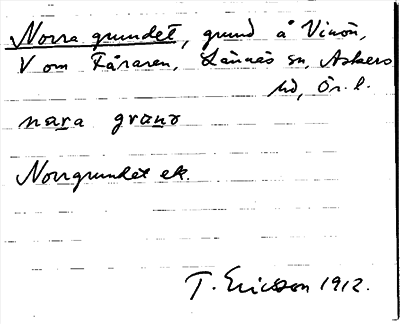 Norra grundet, grund å Vinön,
V om Fåraren, Lännäs sn, Askers
hd, Ör. l.
nara grano
Norrgrundet ek.
T. Ericson 1912.